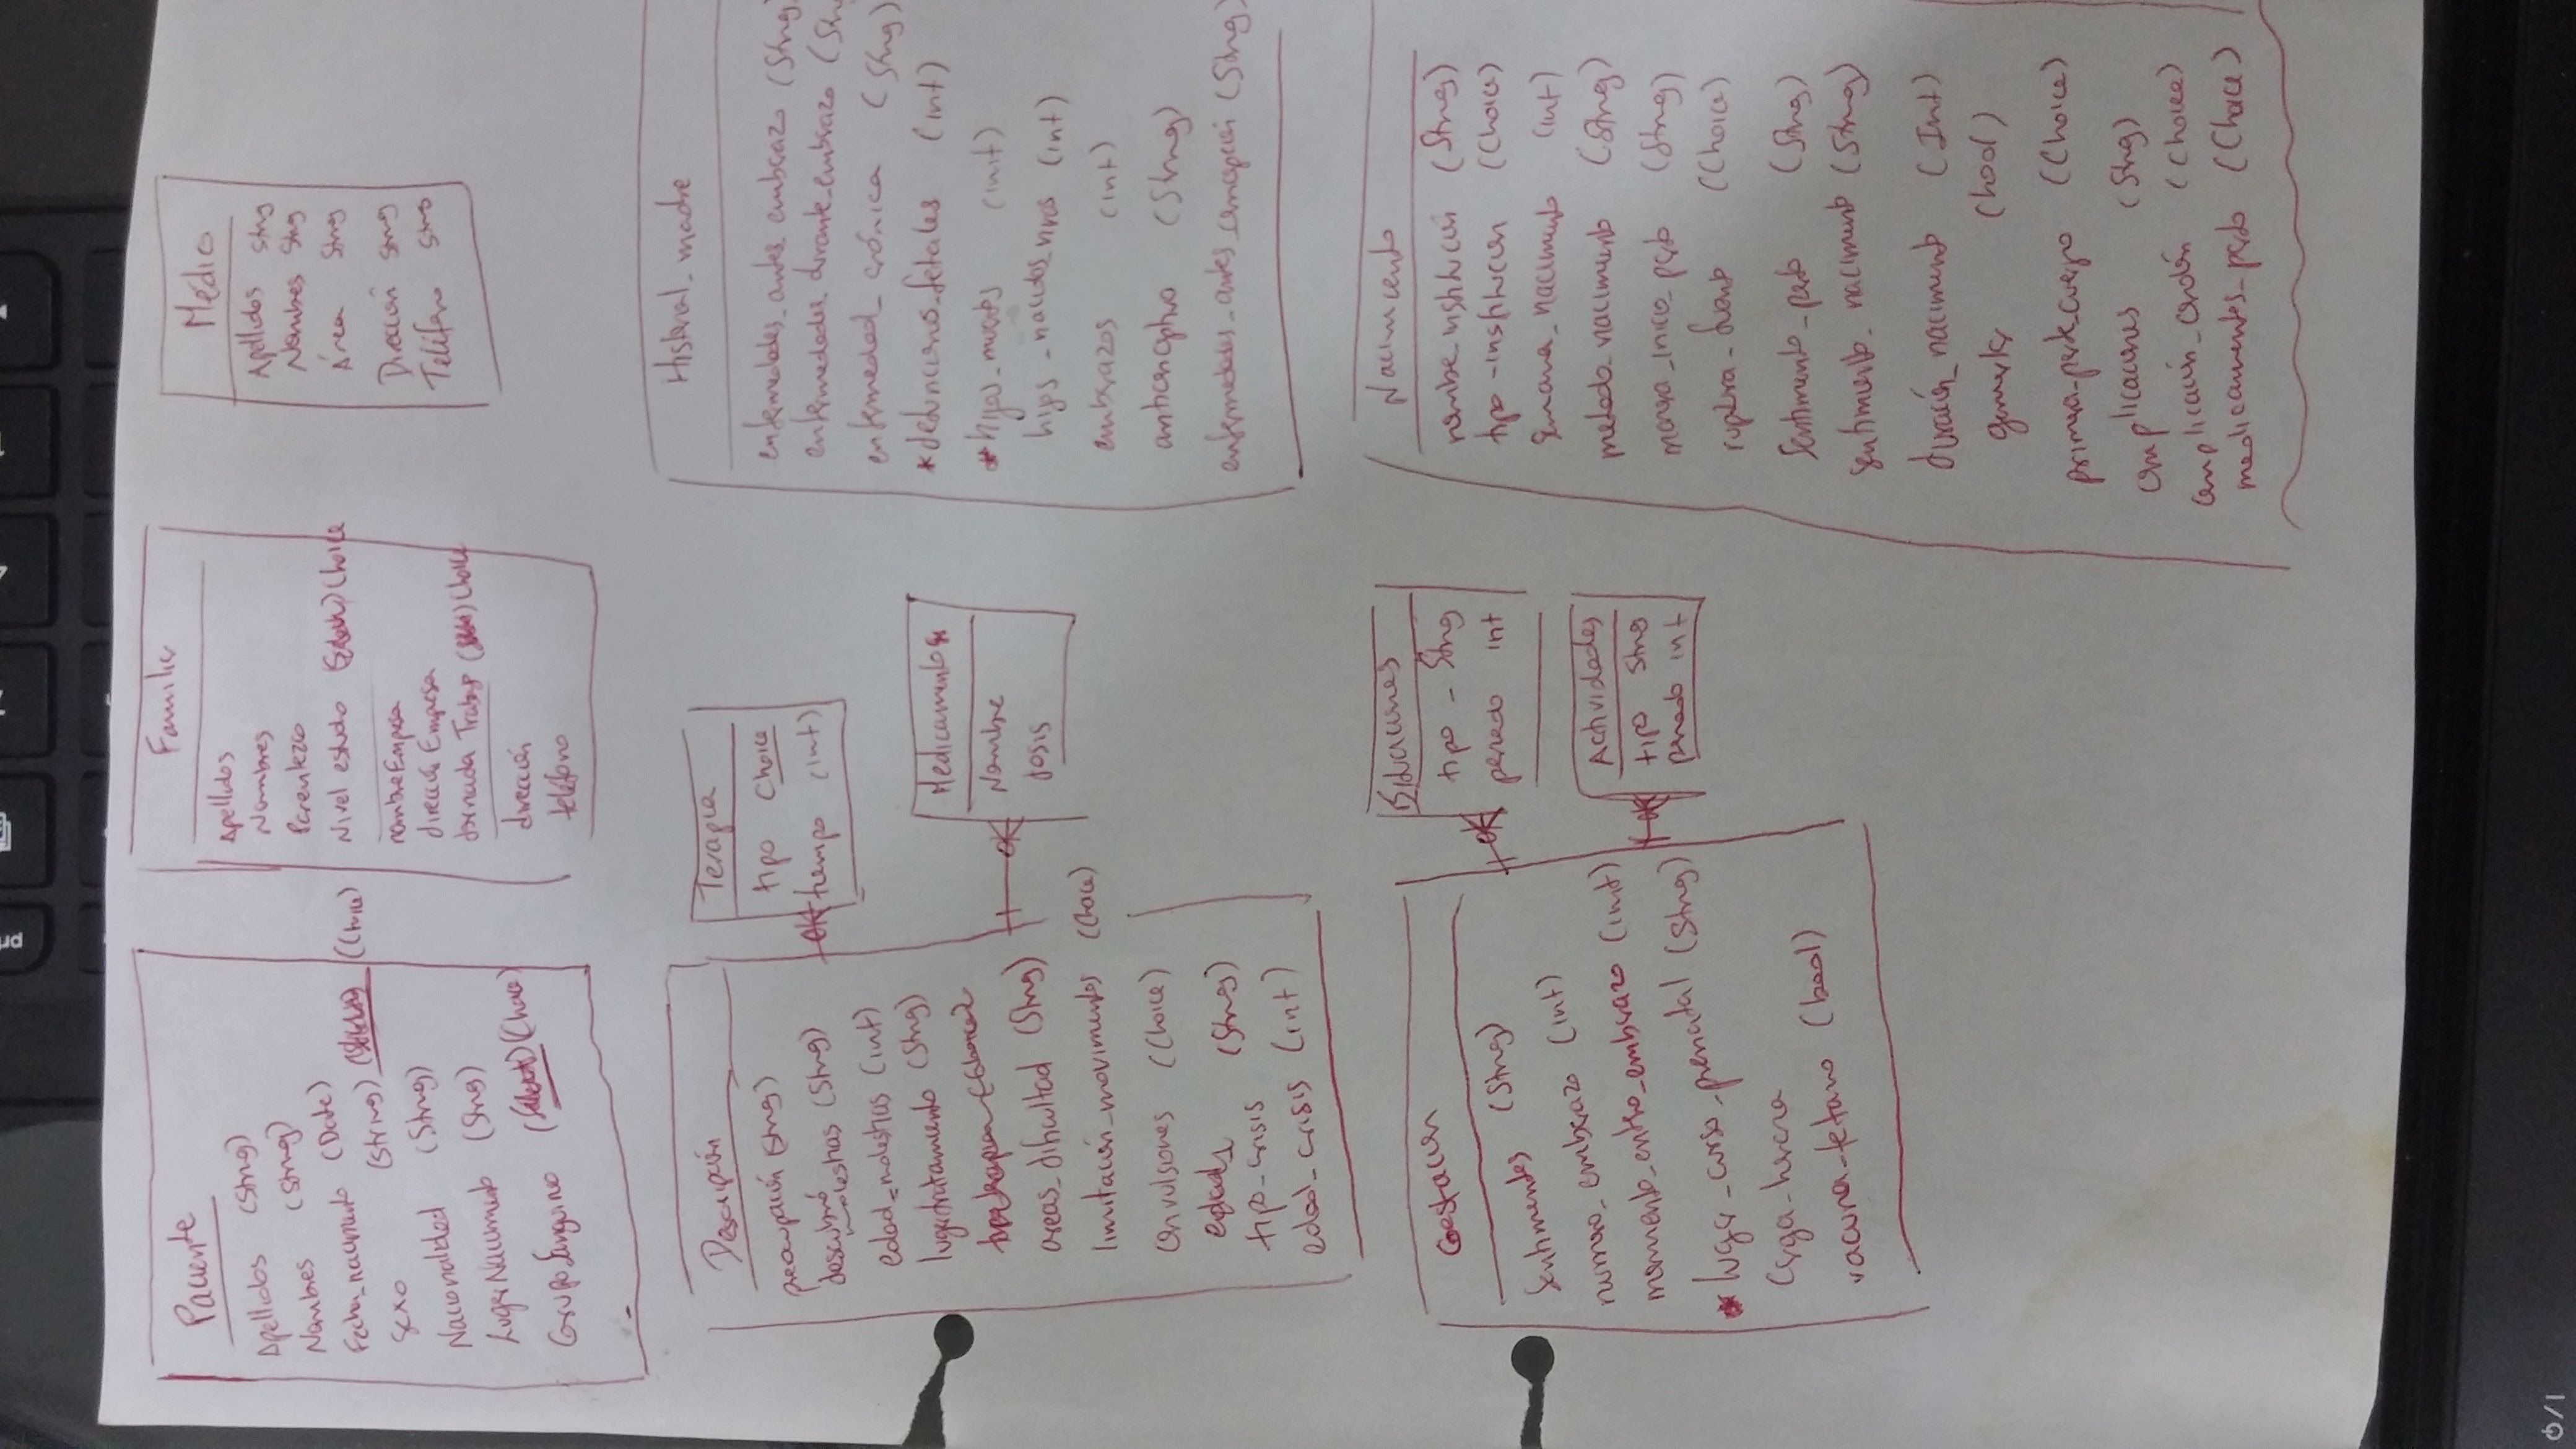 Paciente
Apellidos (String)
Nombres (String)
Fecha_nacimiento (Date)
Sexo (String) (Choice)
Nacionalidad (String)
LugarNacimiento (String)
GrupoSanguineo (Choice)
Familiar
Apellidos
Nombres
Parentezco
Nivel estudio Choice
nombreEmpresa
dirección Empresa
Jornada Trabajo Choice
dirección
teléfono
Médico
Apellidos String
Nombres String
Área String
Dirección String
Teléfono String
Descripción
preocupación (String)
descubrió molestias (String)
edad_molestias (int)
lugartratamiento (String)
areas_dificultad (String)
limitación_movimientos (Choice)
Convulsiones (Choice)
(String)
tipo_crisis
edad_crisis (int)
Terapia
tipo Choice
tiempo (int)
Medicamentos
Nombre
dosis
Historial_madre
enfermedades_antes_embarazo (String)
enfermedades_durante_embarazo (Str
enfermedad_crónica (String)
*defunciones_fetales (int)
*hijos_muertos (int)
hijos_nacidos_vivos (int)
embarazos (int)
anticonceptivo (String)
enfermedades_antes_concepción (String)
Gestación
Sentimientos (String)
numero_embarazo (int)
momento_entero_embarazo (int)
* lugar_curso_prenatal (String)
Carga_horaria
vacuna_tetano (bool)
Situaciones
tipo - String
periodo int
Actividades
tipo String
periodo int
Nacimiento
nombre_institución (String)
tipo_institucion (Choice)
semana_nacimiento (int)
metodo_nacimiento (String)
manera_inicio_parto (String)
ruptura_fuente (Choice)
Sentimiento_parto (String)
sentimiento_nacimiento (String)
duración_nacimiento (Int)
gemelar (bool)
primera_parte_cuerpo (Choice)
complicaciones (String)
complicación_cordón (Choice)
medicamentos_parto (Choice)